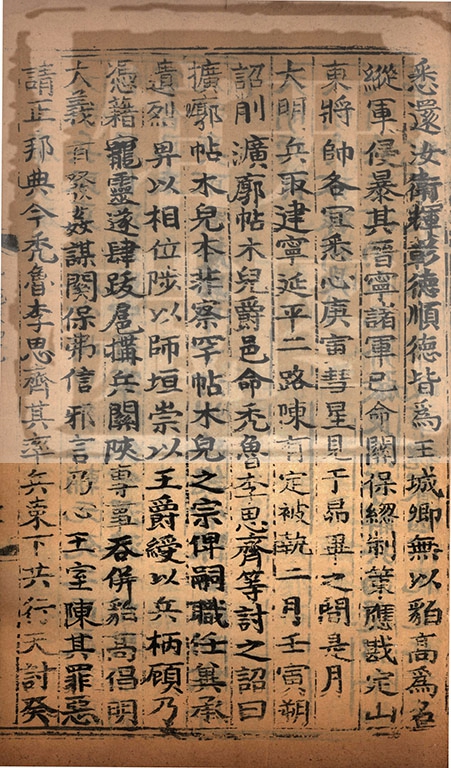 悉還汝衛輝彰德順德皆爲王城卿無以貊高爲名
縱軍侵暴其晉寧諸軍已命關保緫制策應戡定山
東將帥各宜悉心庚寅彗星見于昴畢之間是月
大明兵取建寧延平二路陳有定被執二月壬寅朔
詔削擴廓帖木兒爵邑命禿魯李思齊等討之詔曰
擴廓帖木兒本非察罕帖木兒之宗俾嗣職任兾承
遺烈畀以相位陟以師垣崇以王爵綬以兵柄顧乃
憑藉寵靈遂肆跋扈搆兵關陜專事吞併貊高倡明
大義首發姦謀關保弗信邪言乃心王室陳其罪惡
請正邦典今禿魯李思齊其率兵東下共行天討癸